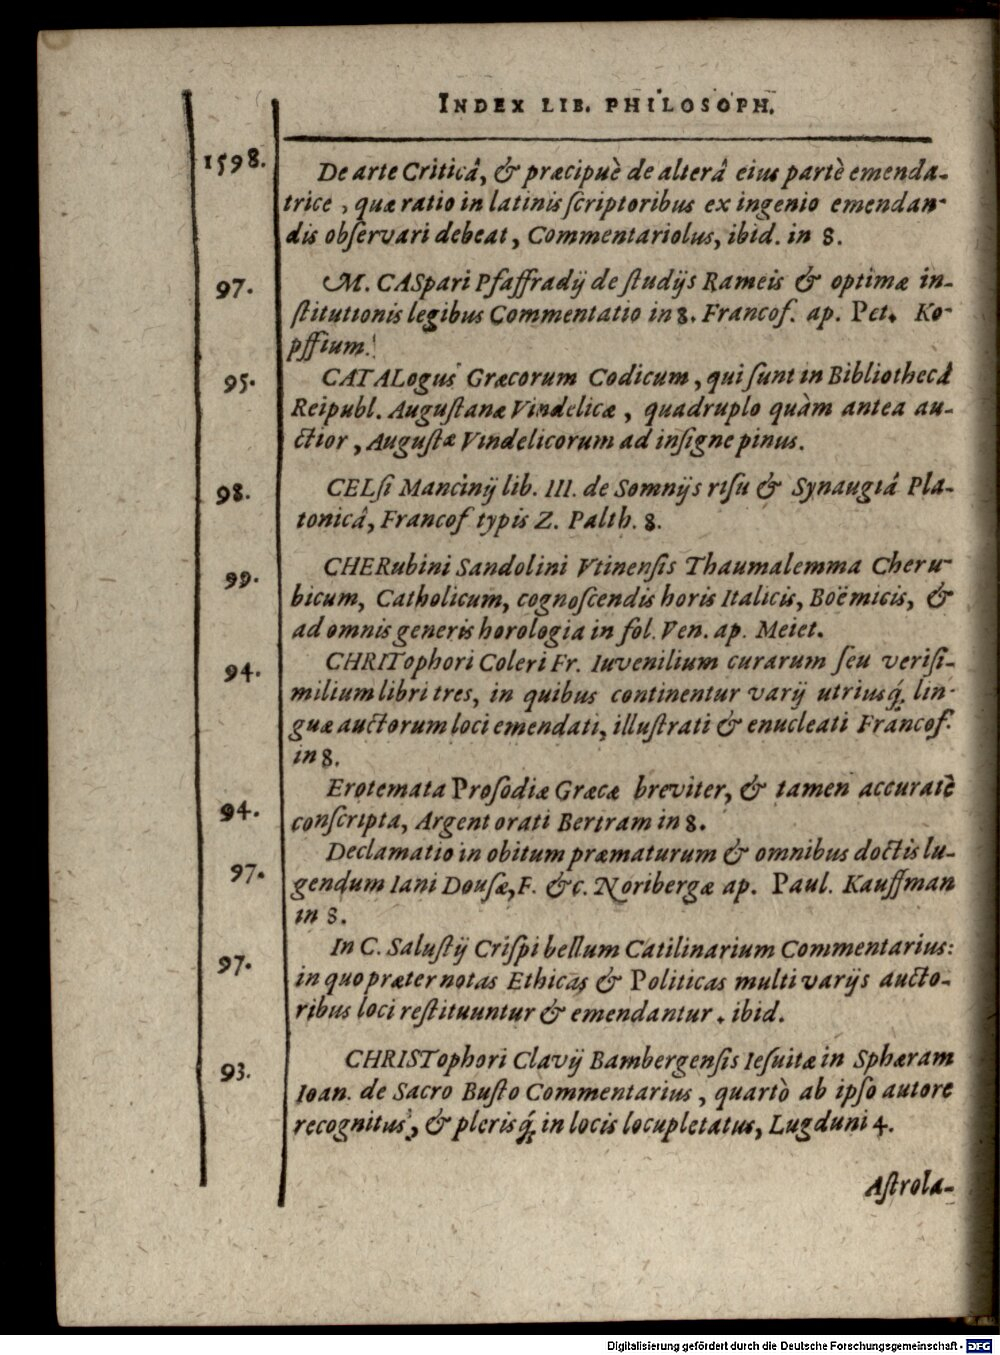 INDEX LIB. PHILOSOPH.
1598.
De arte Criticâ, & præcipuè de alterâ eius partè emenda-
trice, quæ ratio in latinis ſcriptoribus ex ingenio emendan-
dis obſervari debeat, Commentariolus, ibid. in 8.
97.
M. CASpari Pfaffradij de ſtudijs Rameis & optimæ in-
ſtitutionis legibus Commentatio in 8. Francof. ap. Pet. Ko-
pffium.
95.
CATALogus Græcorum Codicum, qui ſunt in Bibliothecâ
Reipubl. Auguſtanæ Vindelicæ, quadruplo quàm antea au-
ctior, Auguſtæ Vindelicorum ad inſigne pinus.
98.
CELſi Mancinij lib. III. de Somnijs riſu & Synaugiâ Pla-
tonicâ, Francof typis Z. Palth. 8.
99.
CHERubini Sandolini Vtinenſis Thaumalemma Cheru-
bicum, Catholicum, cognoſcendis horis Italicis, Boëmicis, &
ad omnis generis horologia in fol. Ven. ap. Meiet.
94.
CHRITophori Coleri Fr. Iuvenilium curarum ſeu veriſi-
milium libri tres, in quibus continentur varij utriusq́; lin-
guæ auctorum loci emendati, illuſtrati & enucleati Francof.
in 8.
94.
Erotemata Proſodiæ Græcæ breviter, & tamen accuratè
conſcripta, Argent orati Bertram in 8.
97.
Declamatio in obitum præmaturum & omnibus doctis lu-
gendum Iani Douſæ, F. &c. Noribergæ ap. Paul. Kauffman
in 8.
97.
In C. Saluſtij Criſpi bellum Catilinarium Commentarius:
in quo præter notas Ethicas & Politicas multi varijs aucto-
ribus loci reſtituuntur & emendantur. ibid.
93.
CHRISTophori Clavij Bambergenſis Ieſuitæ in Sphæram
Ioan. de Sacro Buſto Commentarius, quartò ab ipſo autore
recognitus, & plerisq́; in locis locupletatus, Lugduni 4.
Aſtrola-
Digitalisierung gefördert durch die Deutsche Forschungsgemeinschaft - DFG